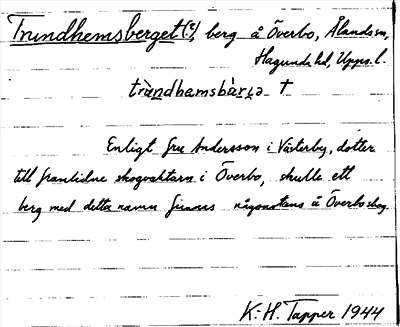 Trundhemsberget(?), berg å Överbo, Ålands sn,
Hagunda hd, Upps. l.
tràndhamsbàrjə †
Enligt fru Andersson i Västerby, dotter
till framlidne skogvaktarn i Överbo, skulle ett
berg med detta namn finnas någonstans å Överbo skog.
K.-H. Tapper 1944